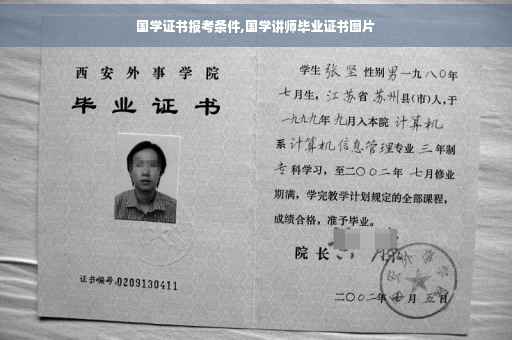 国学证书报考条件,国学讲师毕业证书图片
西安外事学院
毕业证书
证书编号:0209130411
学生 张坚 性别 男 一九八〇年
七月生, 江苏省 苏州 县(市)人,于
一九九九年 九月入本院 计算机
系 计算机信息管理专业 三 年制
专 科学习,至二〇〇二年 七月修业
期满,学完教学计划规定的全部课程,
成绩合格,准予毕业。
院长
二〇〇二年 月 五 日